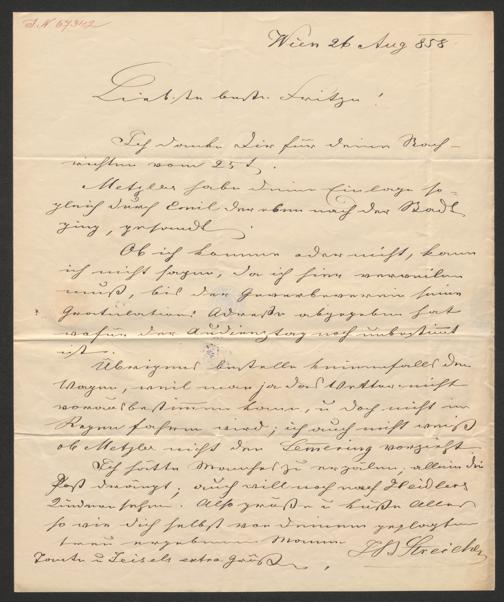 Wien 26 Aug 858
Liebste beste Fritze!
Ich danke Dir für deine Nach-
richten vom 25 t.
Metzler habe deine Einlage so-
gleich durch Emil der eben nach der Stadt
ging, gesandt.
Ob ich komme oder nicht, kann
ich nicht sagen, da ich hier verweilen
muß, bis der Gewerbeverein seine
Gratulations Adresse abgegeben hat
wofür der Audienztag noch unbestimt
ist.
Übrigens bestelle keinenfalls den
Wagen, weil man ja das Wetter nicht
vorausbestimmen kann, u doch nicht im
Regen fahren wird; ich auch nicht weiß
ob Metzler nicht den Semering vorzieht
Ich hätte Manches zu erzälen, allein die
Post drängt; auch will noch nach
sehen. Also grüße u küße Alles
so wie dich selbst von deinem geplagten
treu ergebenen Manne JB Streicher
Tante u extra Grüße